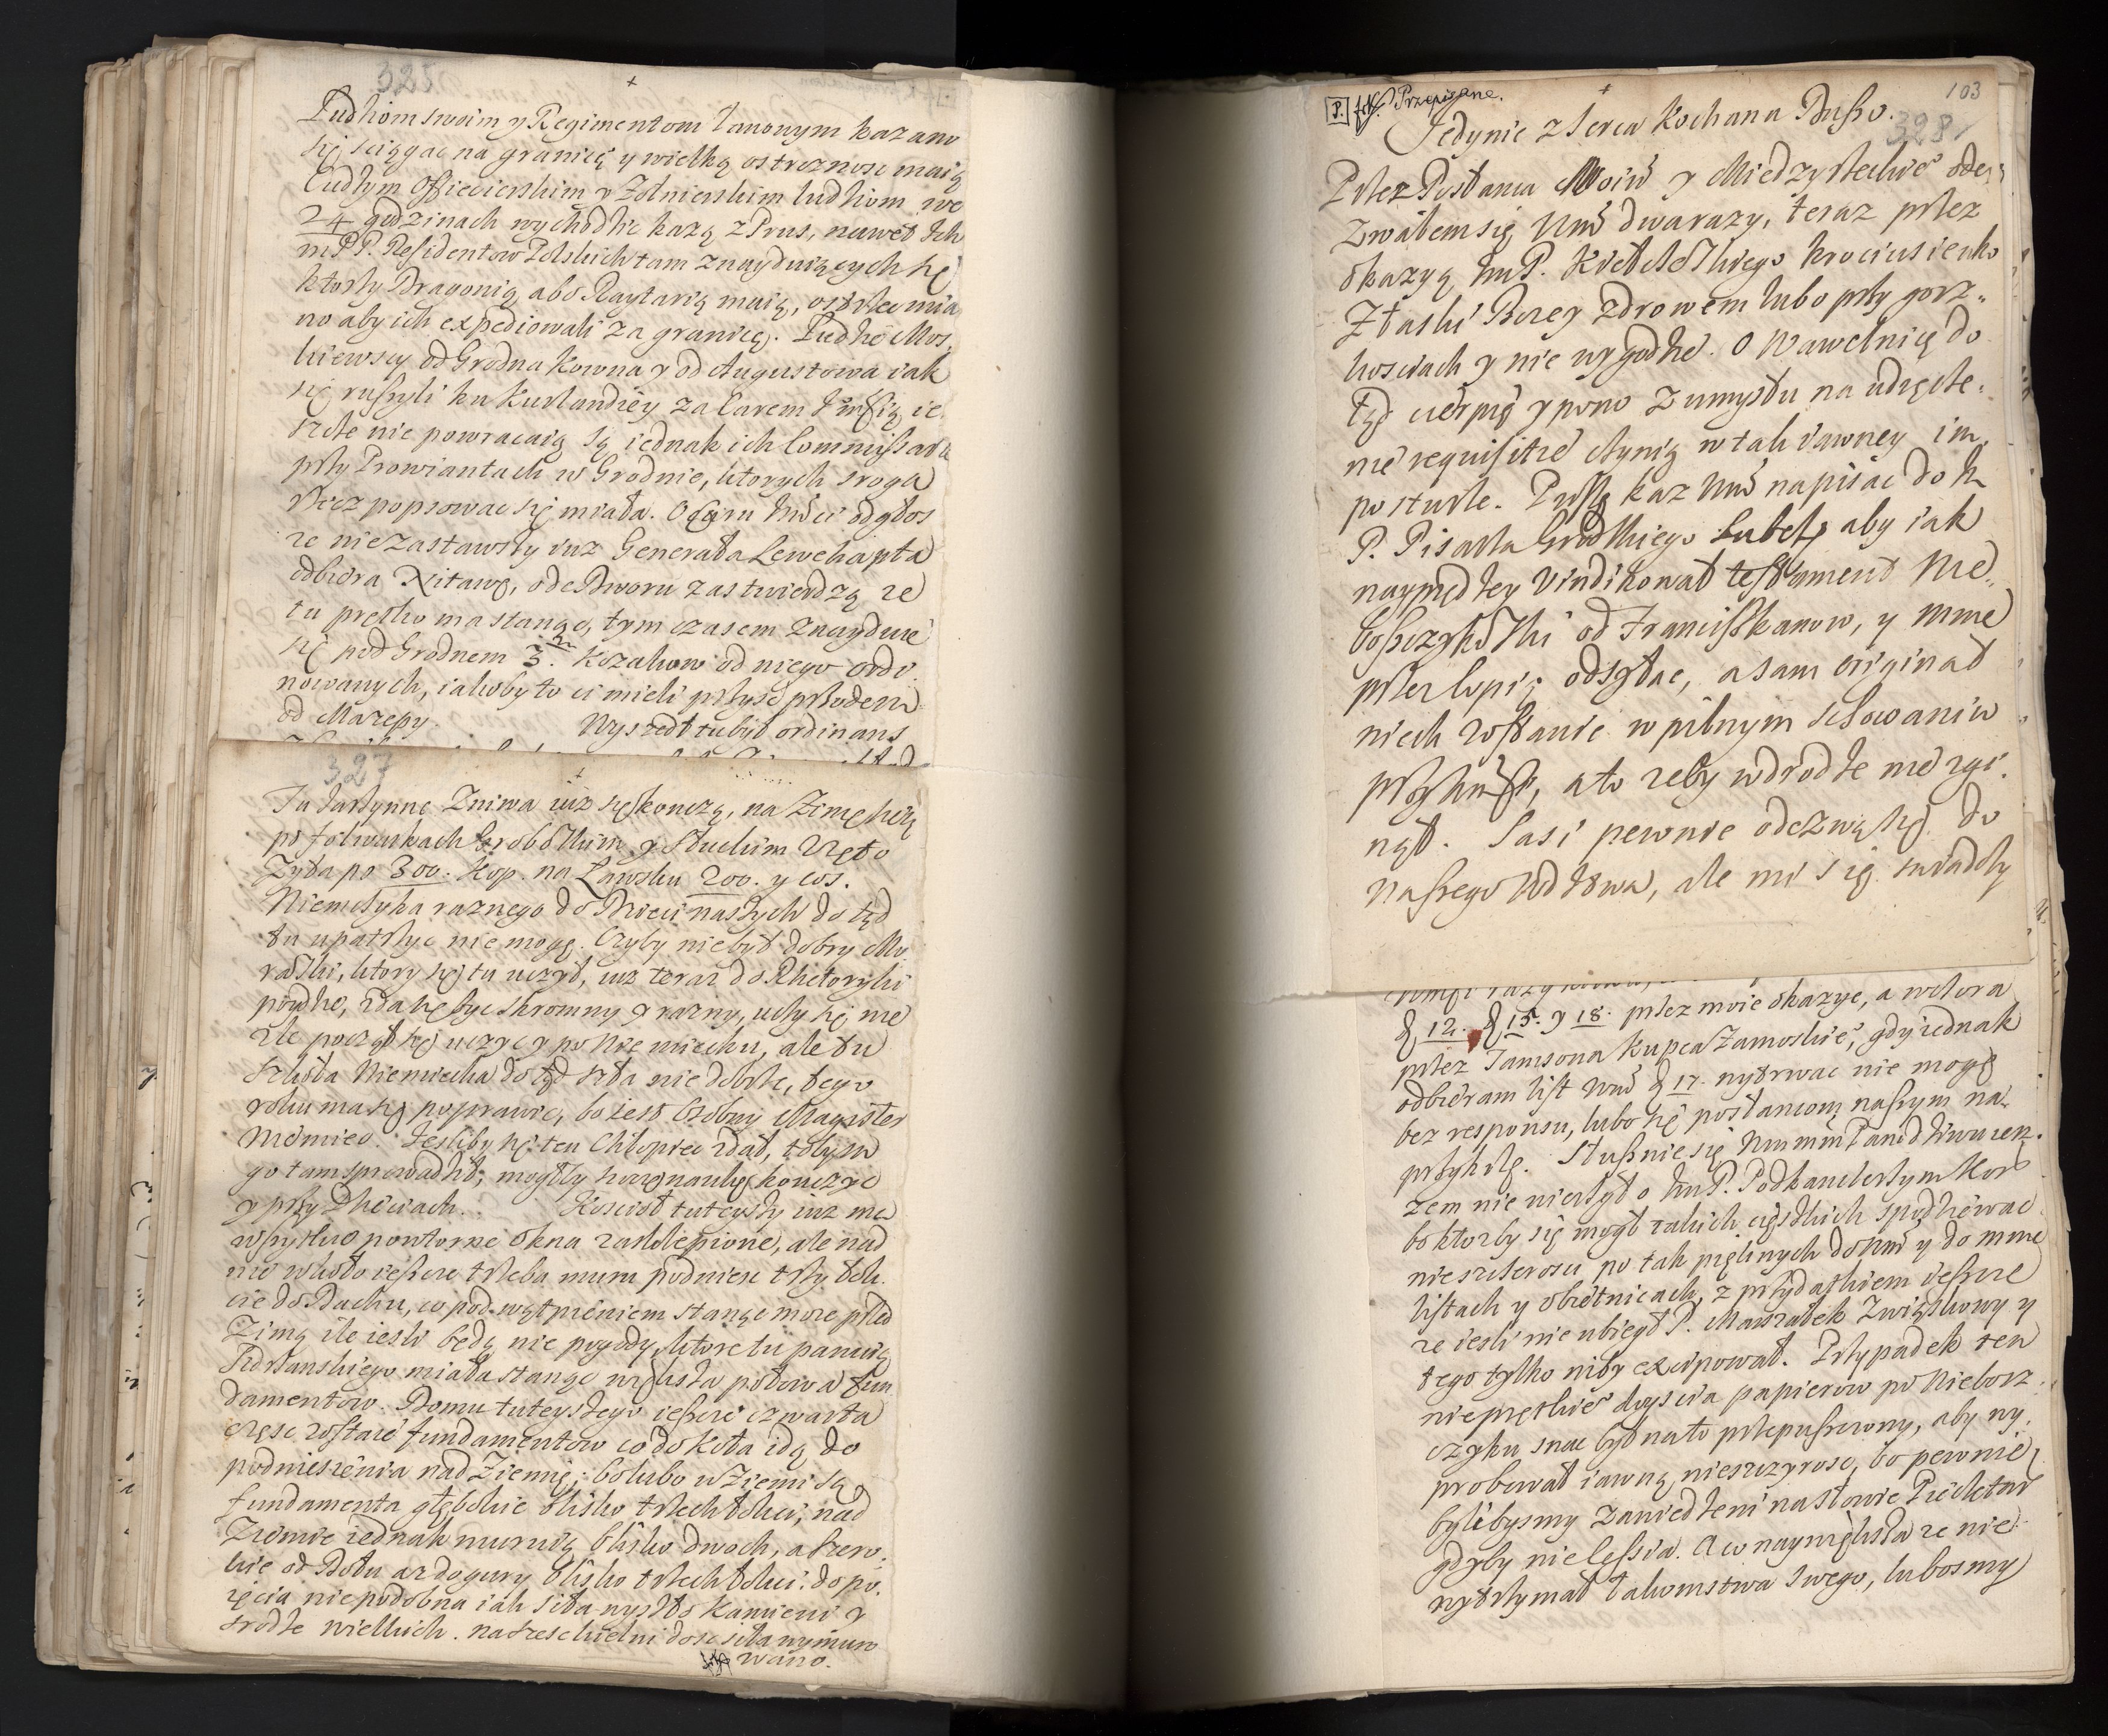 325
+
Ludziom swoim y Regimentom Łanonym kazano
się sciągac na granicę y wielką ostroznosc maią
Cudzym Officierskim y Zołnierskim ludziom we
24 godzinach wychodzic kazą z Prus, nawet Ich
mPP. Residentow Polskich tam znayduiących się
ktorzy Dragonią abo Raytarią maią, ostrzezmia
no aby ich expediowali za granicę. Ludzie Mos
kiewscy od Grodna Kowna y od Augustowa iak
się ruszyli ku Kurlandiey za Carem
szcze nie powracaią są iednak ich Commissarze
przy Prowiantach w Grodnie, ktorych sroga
rzecz popsowac się miała. O Caru odgłos
ze nie zastawszy iuz Generała Lewehapta
odbiera Mitawę, ode Dworu zas twierdzą ze
tu prętko ma stanąc, tym czasem znayduie
się pod Grodnem 3. Kozakow od niego ordy
nowanych, iakoby to ci mieli przysc przodem
od Mazepy. Wyszedł tu był ordinans
327
+
Tu tarzynne Zniwa iuz się konczą, na Zimę sieią
po folwarkach Grobelskim y Słuckim Zięto
Zyta po 300. Kop. na Ławsku 200. y cos.
Niemczyka raznego do Dzieci naszych do tąd
tu upatrzyc nie mogę. Czyby nie był dobry Mo
ralski, ktory się tu uczył, iuz teraz do Rhetoryki
poydzie, zda się byc skromny y razny, uczy się nie
zle począł się uczyc y po Niemiecku, ale tu
szkoła Niemiecka do tąd szła nie dobrze, tego
roku ma się poprawic, bo iest osobny Magister
Niemiec. Jesliby się ten Chłopiec zdał, tobym
go tam sprowadził, mogłby swoię naukę konczyc
y przy Dzieciach. Kosciół tuteyszy iuz ma
wszytkie powtorne Okna zasklepione, ale nad
nie wkoło ieszcze trzeba muru podniesc trzy łok
cie do Dachu, co pod wątpieniem stanąc moze przed
Zimą ile iesli będą nie pogody, ktore tu panuią
miała stanąc większa połowa fun
damentow. Domu tuteyszego ieszcze czwarta
częsc zostaie fundamentow co do koła idą do
podniesienia nad Ziemię; bo lubo w Ziemi są
fundamenta głębokie blisko trzech łokci, nad
Ziemie iednak muruią blisko dwoch, a szero
kie od Dołu az do gury blisko trzech łokci. do po
ięcia niepodobna iak siła wyszło Kamieni y
srodze wielkich. na szesc łokci dosc siła wymuro
wano.
P. Przepisane.
+
103
328
Jedynie z Serca Kochana Duszo.
Przez Posłanca Moiw y Miedzyrzeckiē ode
zwałem się Wmci dwa razy, teraz przez
okazyą ImP. Kiełczewskiego krociusienko
Z łaski Bozey zdrowem lubo przy gorz„
kosciach y nie wygodzie. O Wawelnię do
tąd cierpię y pono z umysłu na udręcze„
nie requisitie czynią w tak iawney im„
posturze. Proszę kaz Wmci napisac do Im
P. Pisarza Grodzkiego Lubel. aby iak
nayprędzey vindikował testament Nie„
boszczykowski od Franciszkanow, y mnie
przez kopię odsyłac, a sam originał
niech zostanie w pilnym schowaniu
przy , a to zeby w drodze nie zgi
nął. Sasi pewnie odezwą się do
naszego , ale mi się swiadczy
12. 15. y 18. przez moie okazye, a wczora
przez Jamsona Kupca Zamoskiē, gdy iednak
odbieram list Wmci 17. wytrwac nie mogę
bez responsu, lubo się posłancom naszym na
przykrzę. Słusznie się Mmm Pani dziwuiesz
zem nie wierzył o ImP. Podkanclerzym Kor
bo ktorzby się mogł takich cięszkich spodziewac
nie szczerosci po tak pięknych do Wmci y do mnie
listach y obietnicach, z przydatkiem ieszcze
ze iesli nie ubiegł P. Marszałek Związkowy y
tego tylko niby excipował. Przypadek ten
nieprętkiē doyscia papierow po Nieborz
czyku snac był na to przepuszczony, aby wy„
probował iawną nieszczyrosc, bo pewnie
bylibysmy zawiedzeni na słowie Pieczętar
gdyby nie Cessia. A co naywiększa ze nie
wytrzymał łakomstwa swego, lubosmy